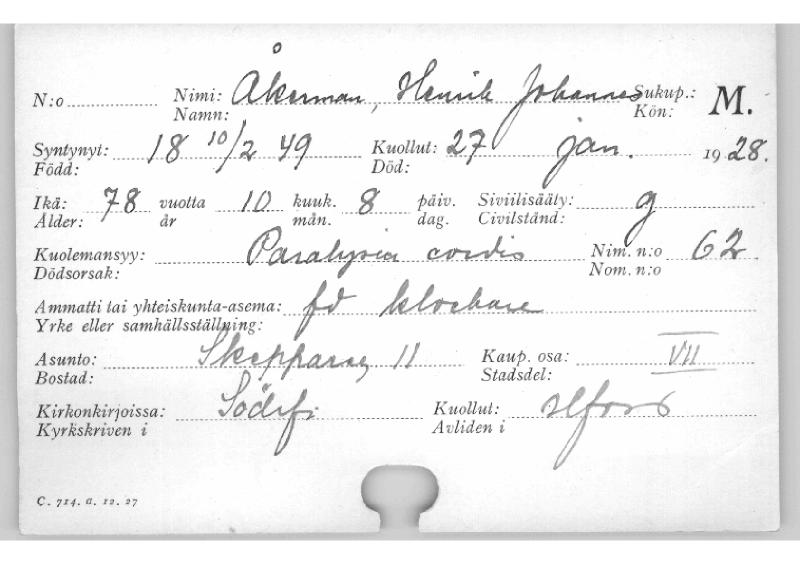 Å
N:o Nimi: Åkerman, Henrik Johannes Sukup.: M.
Namn: Kön:
Syntynyt: 18 10/2 49 Kuollut: 27 jan. 1928.
Född: Död:
Ikä: 78 vuotta 10 kuuk. 8 päiv. Siviilisääty: g
Ålder: år mån. dag. Civilstånd:
Kuolemansyy: Paralysia cordis Nim. n:o 62
Dödsorsak: Nom. n:o
Ammatti tai yhteiskunta-asema: fd klockare
Yrke eller samhällsställning:
Asunto: Skeppareg 11 Kaup. osa: VII
Bostad: Stadsdel:
Kirkonkirjoissa: Söderf: Kuollut: Hfors
Kyrkskriven i Avliden i
C. 714. a. 12. 27